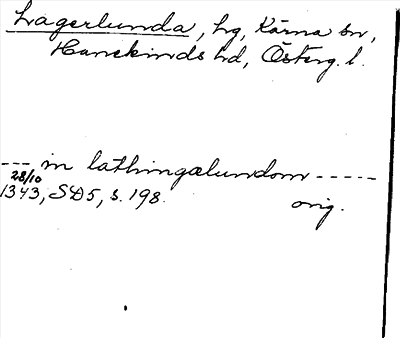 Lagerlunda, hg, Kärna sn,
Hanekinds hd, Österg. l.
--- in lathingælundom -----
28/10
1343, SD5, s. 198. orig.